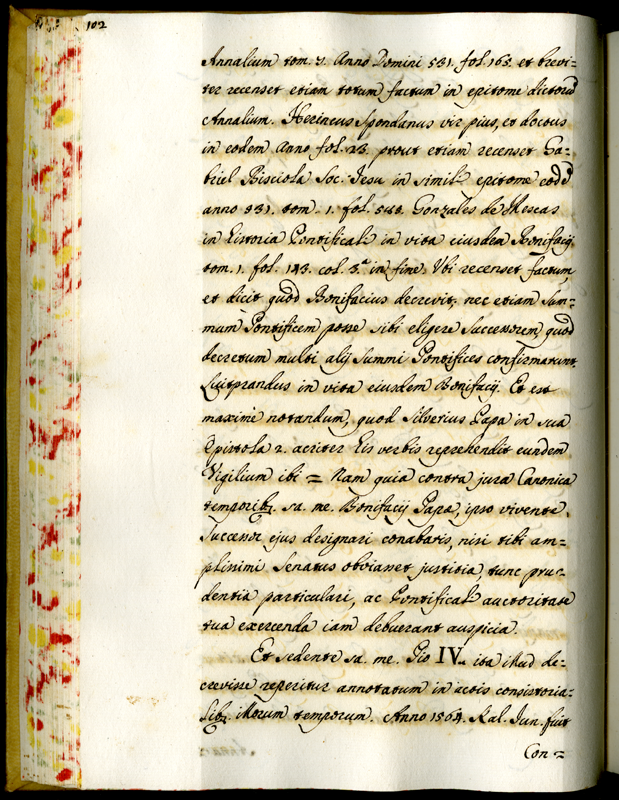 102
Annalium tom. 7. Anno Domini 531. fol. 165. et brevi=
ter recenset etiam totum factum in epitome dictorũ
Annalium. Henricus Spondanus vir pius, et doctus
in eodem Anno fol. 23. prout etiam recenset Ga=
briel Bisciola Soc: Jesu in simili epitome eodẽ
anno 531. tom. 1. fol. 548. Gonzales de Illescas
in historia Pontificali in vita eiusdem Bonifacij
tom. 1. fol. 143. col. 3.ª in fine Ubi recenset factum,
et dicit quod Bonifacius decrevit, nec etiam Sum=
mum Pontificem posse sibi eligere Successorem, quod
decretum multi alij Summi Pontifices confirmarunt.
Luitprandus in vita eiusdem Bonifacij. Et est
maxime notandum, quod Silverius Papa in sua
Epistola 2. acriter his verbis reprehendit eundem
Vigilium ibi = Nam quia contra jura Canonica
temporibꝫ sa. me. Bonifacij Papæ, ipso vivente.
Successor ejus designari conabaris, nisi tibi am=
plissimi Senatus obvianet justitia, tunc pru=
dentia particulari, ac Pontificali auctoritate
tua exercenda iam debuerant auspicia.
Et sedente sa. me. Pio IV. ita illud de=
crevisse reperitur annotatum in actis consistoria=
libꝫ illorum temporum. Anno 1564. Kal. Jun. fuit
Con=